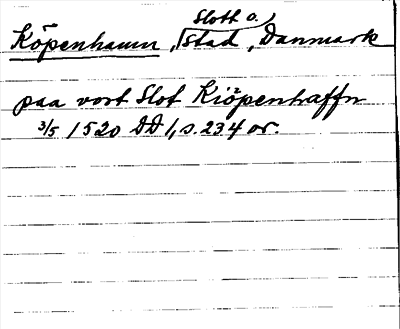 Slott o.
Köpenhamn, stad, Danmark
paa vort Slot Kiöpenhaffn
3/5 1520 DD 1, s. 234 or.